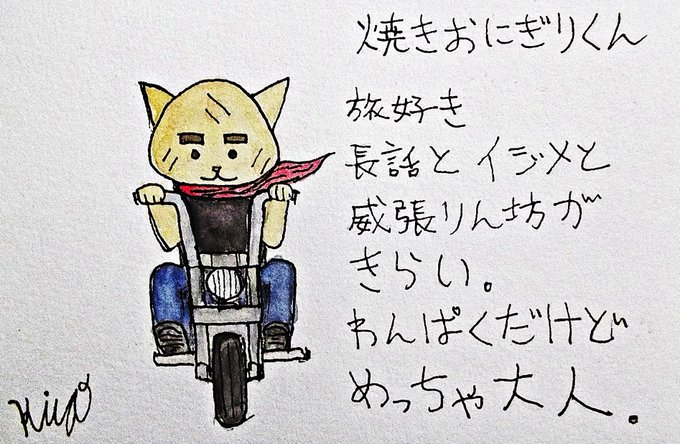 焼きおにぎりくん
旅好き
長話とイジメと
威張りん坊が
きらい。
わんぱくだけど
めっちゃ大人.